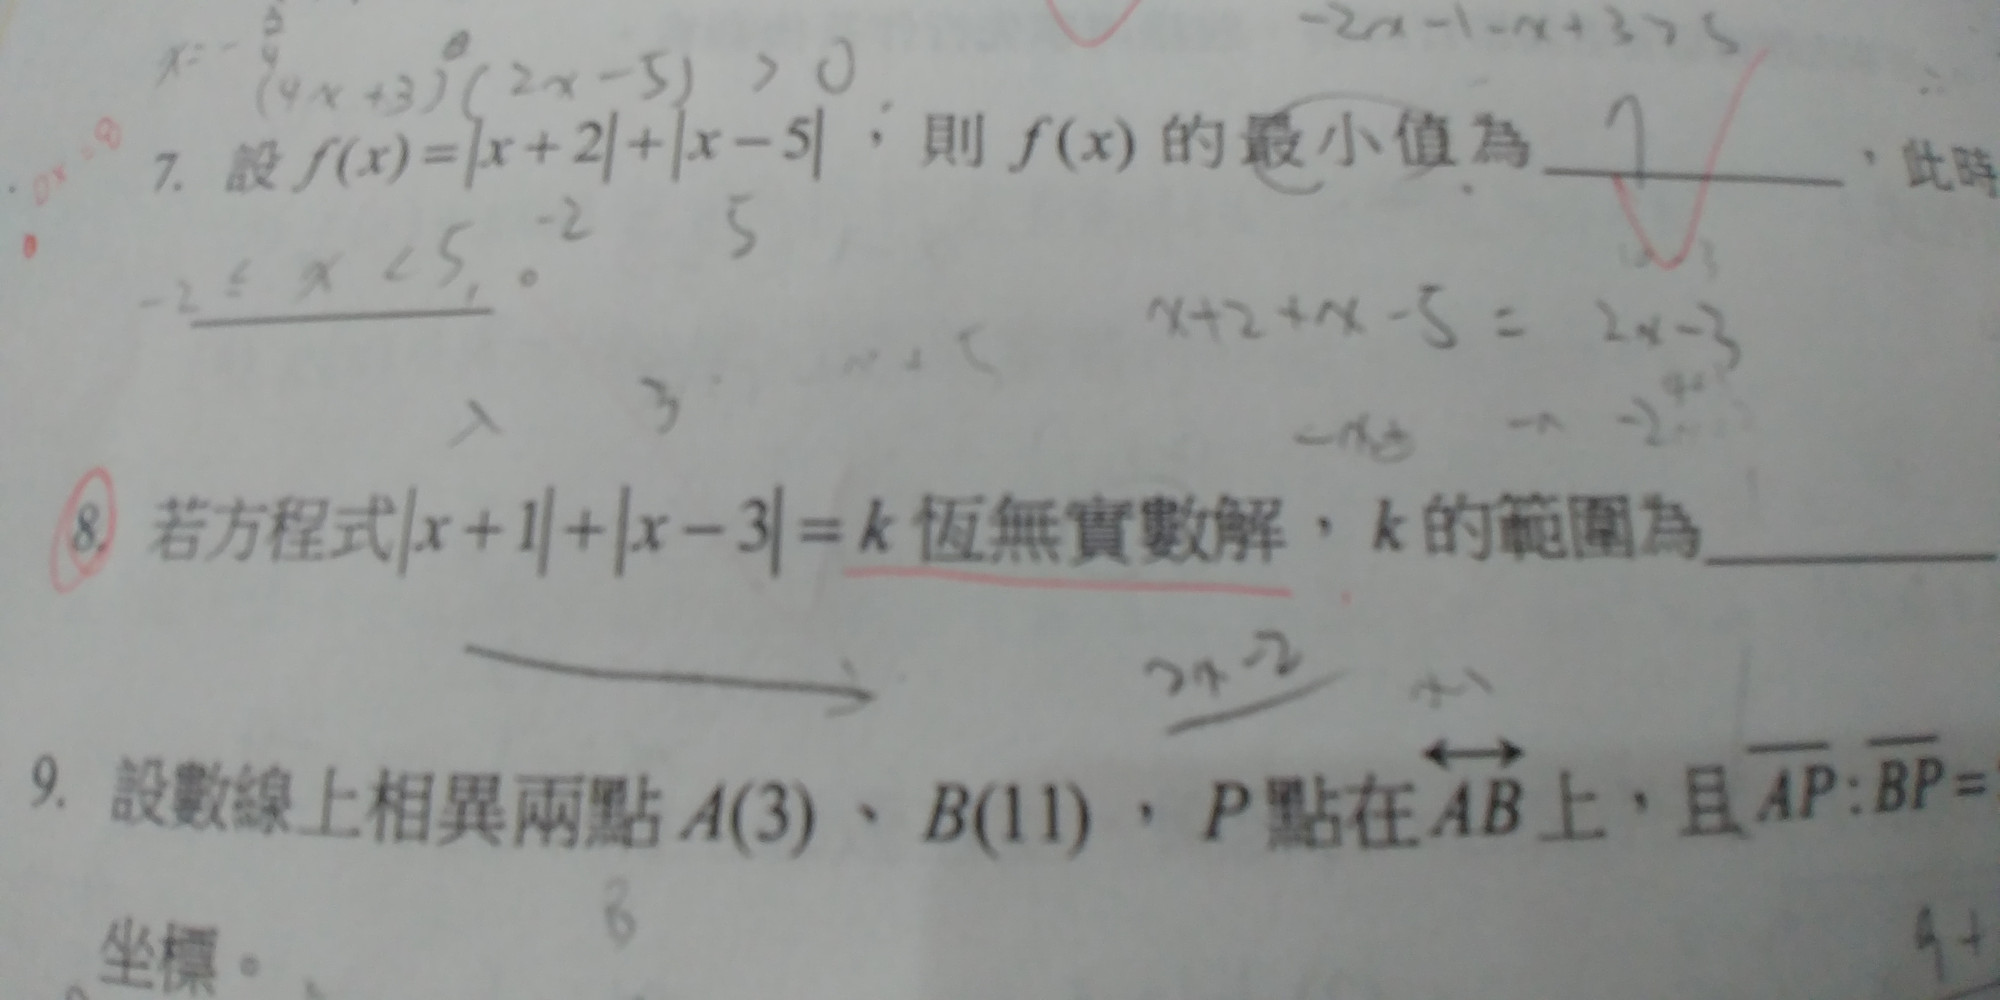 -2x-1-x+3>5
(4x+3)(2x-5)>0
7. 設 f(x)=|x+2|+|x-5|,則 f(x) 的最小值為 7 ,此時
-2 5
-2≤x<5。
x+2+x-5=2x-3
3
8. 若方程式|x+1|+|x-3|=k 恆無實數解,k 的範圍為
9. 設數線上相異兩點 A(3)、B(11),P 點在 AB 上,且 AP:BP=
8
坐標。